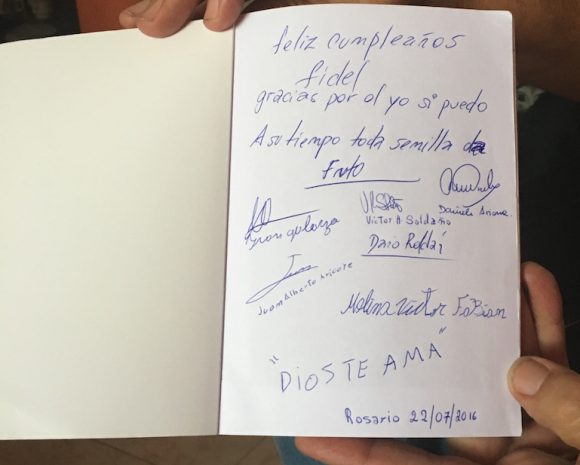 feliz cumpleaños
fidel
gracias por el yo si puedo
A su tiempo toda semilla da
Fruto
Victor A Soldaño
Daniele
Juan Alberto
Molina Victor FaBian
"DIOS TE AMA"
Rosario 22/07/2016